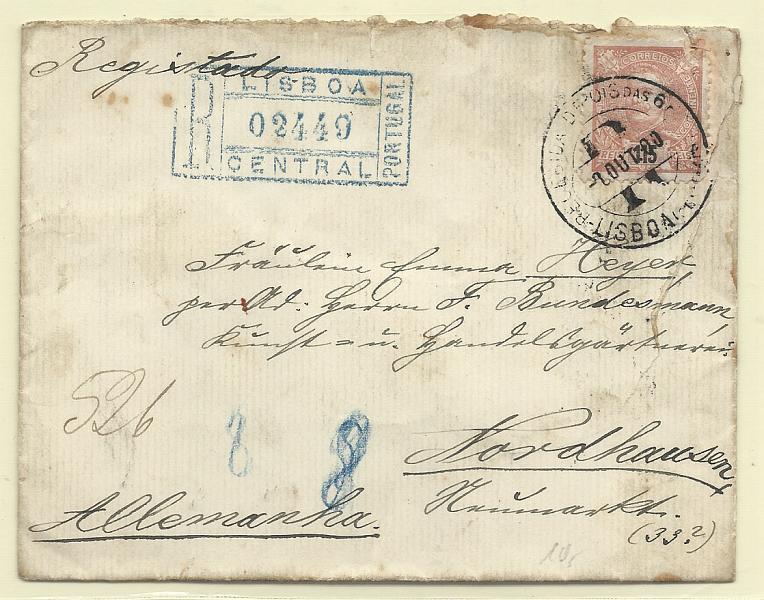 Registado
LISBOA
R 02449 PORTUGAL
CENTRAL
CORREIOS
75
DEPOIS DAS 6
OUT 00
1
LISBOA
Fräulein Emma Heyer,
per Ad: Herrn F. Bundesmann,
Kunst- u. Handelsgärtnerei.
526
8
8
Nordhausen
Neumarkt.
(33?)
Allemanha.